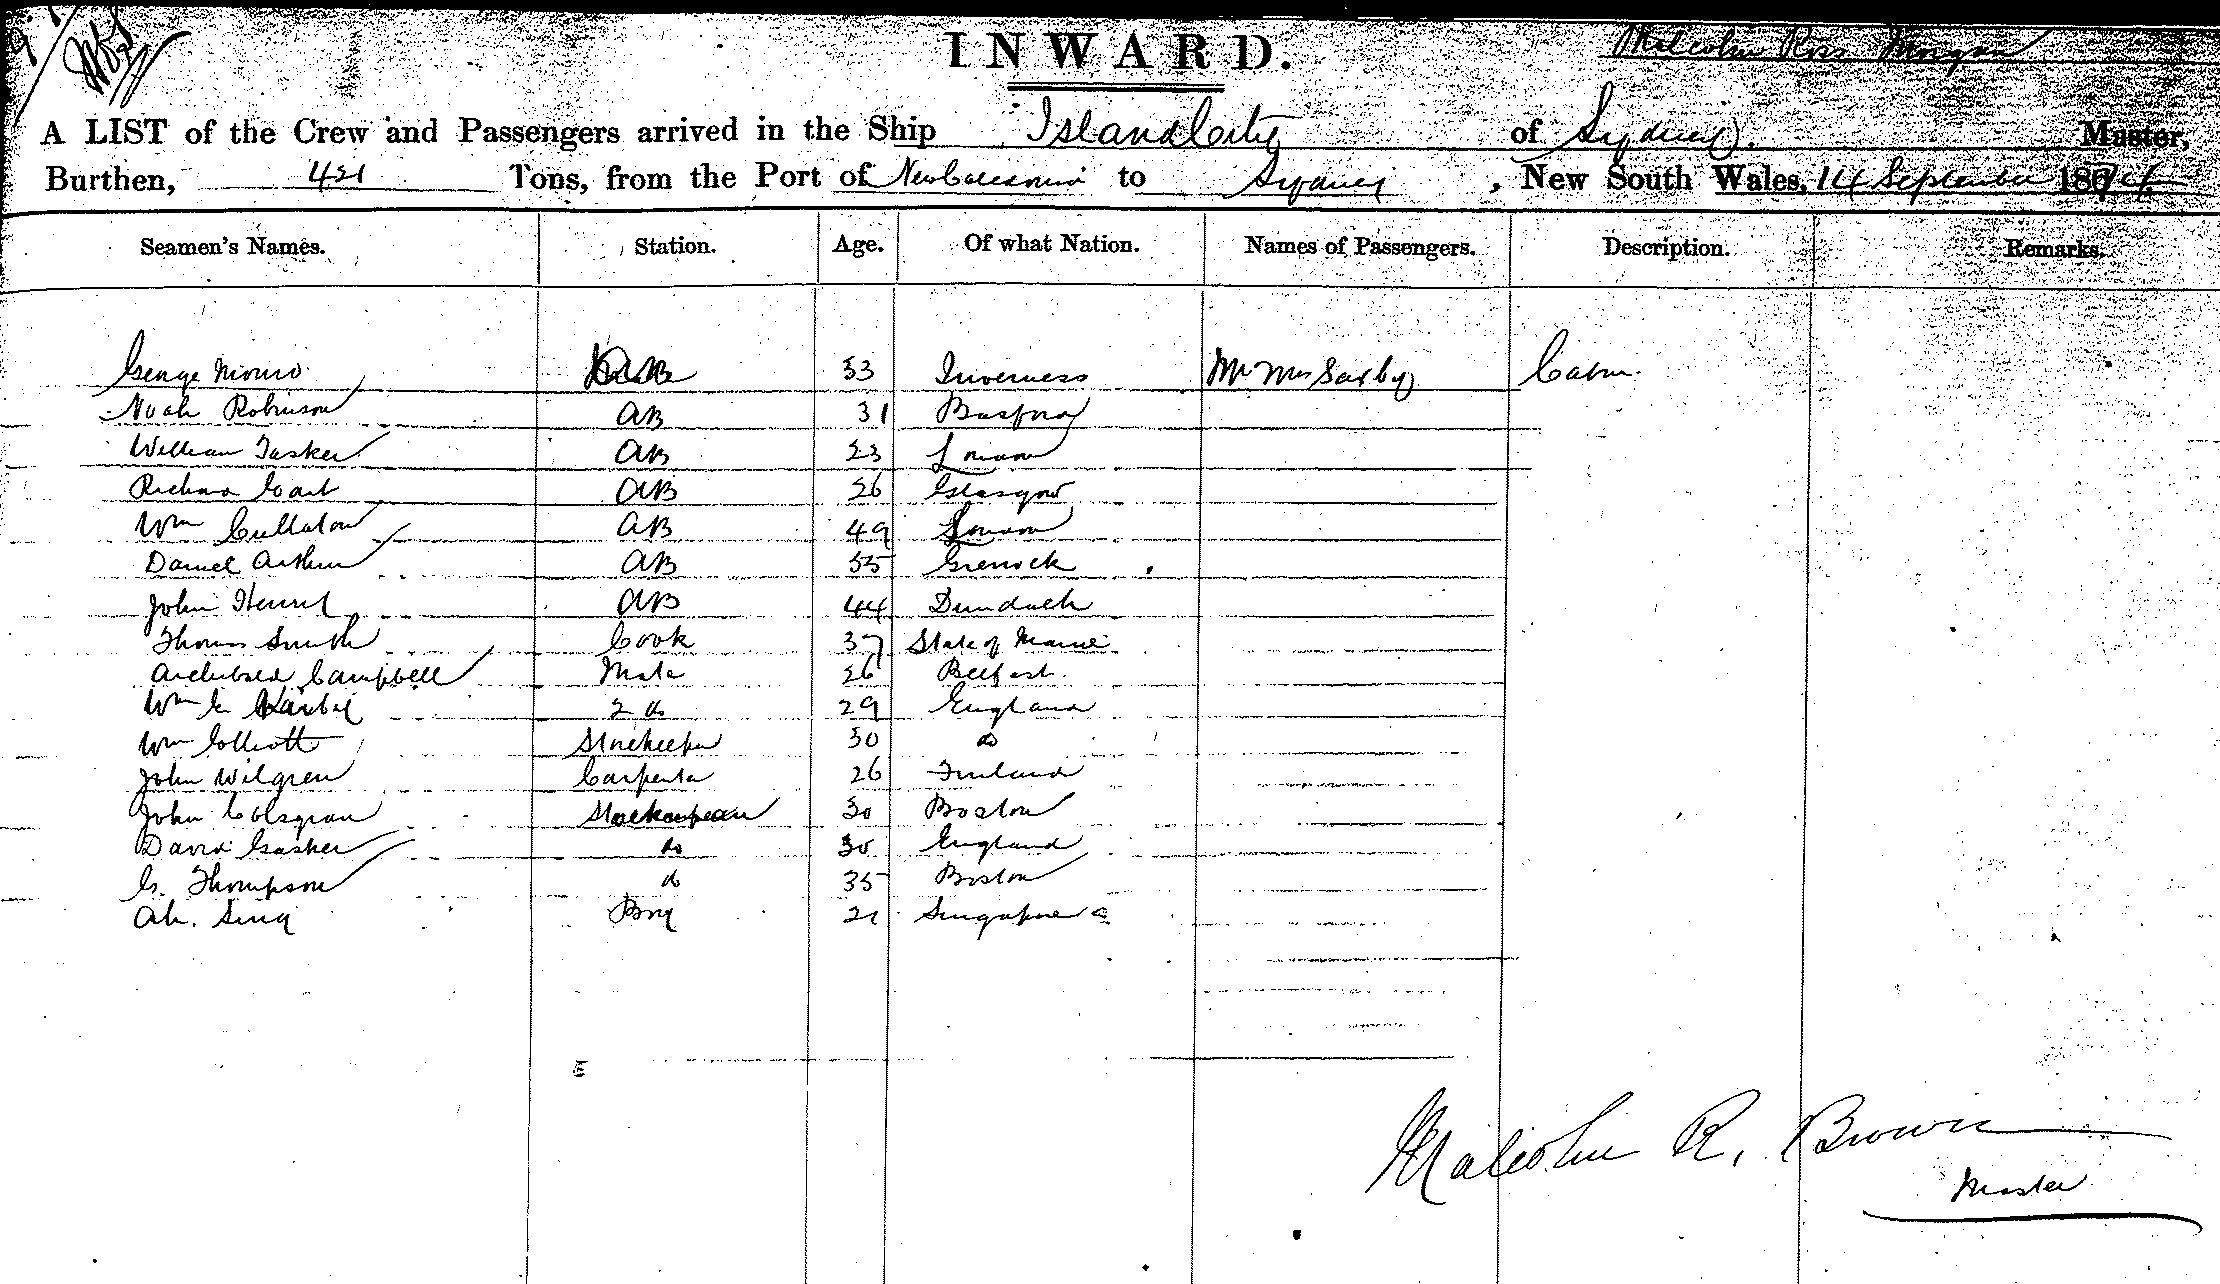 INWARD.
Malcolm Ross
A LIST of the Crew and Passengers arrived in the Ship Island City of Sydney. Master,
Burthen, 421 Tons, from the Port of New Caledonia to Sydney, New South Wales, 14 September 1874
Seamen's Names. Station. Age. Of what Nation. Names of Passengers. Description. Remarks.
George Monro 33 Inverness Mr Mrs Saxby Cabin
Noah Robinson AB 31 Basford
William Tasker AB 23 London
Richard AB 26 Glasgow
Wm Cullaton AB 49 London
Daniel Arthur AB 35 Greenock
John AB 44 Dundalk
Thomas Smith Cook 37 State of Maine
Archibald Campbell Mate 26 Belfast
Wm 2 do 29 England
Wm Elliott Storekeeper 30 do
John Wilgren Carpenter 26 Finland
John Colsgran 30 Boston
David do 30 England
G. Thompson do 35 Boston
Ah. Sing Boy 21 Singapore
Malcolm R. Brown
Master